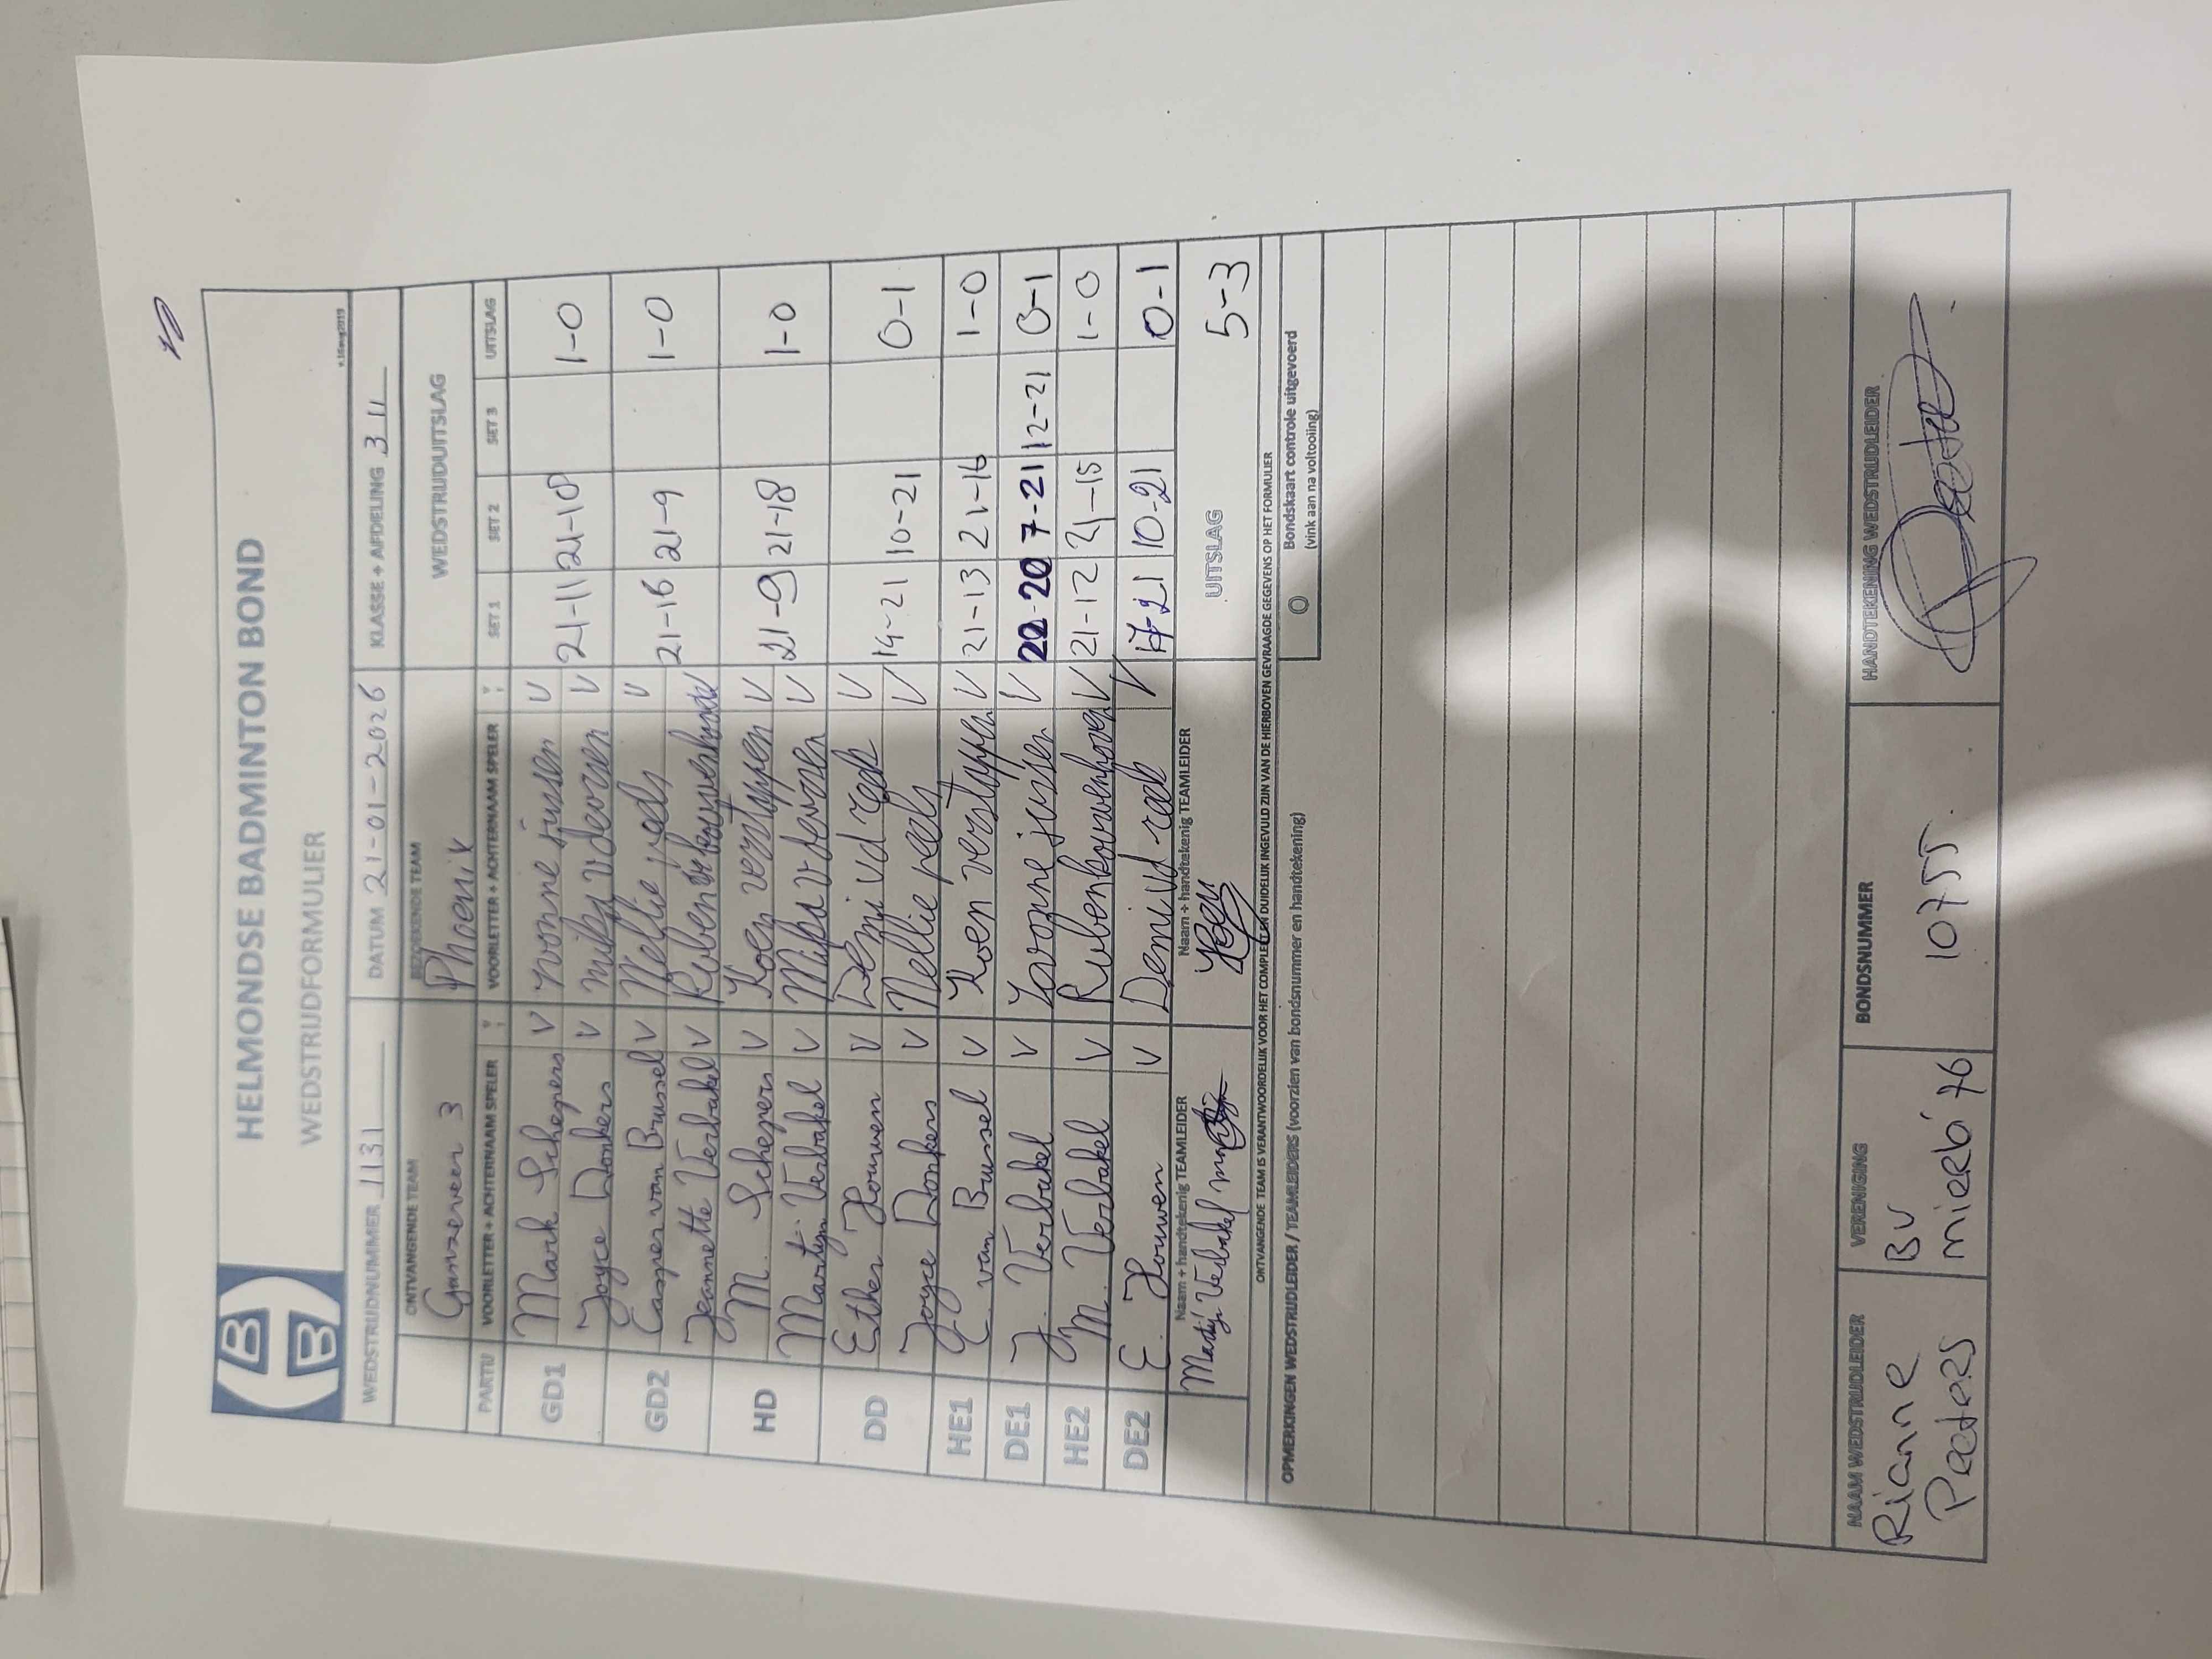 HELMONDSE BADMINTON BOND
WEDSTRIJDFORMULIER
v.16aug2019
WEDSTRIJDNUMMER 1131 DATUM 21-01-2026 KLASSE + AFDELING 3 11
ONTVANGENDE TEAM BEZOEKENDE TEAM WEDSTRIJDUITSLAG
Ganzeveer 3 Phoenix
PARTIJ VOORLETTER + ACHTERNAAM SPELER VOORLETTER + ACHTERNAAM SPELER SET 1 SET 2 SET 3 UITSLAG
GD1 Mark Schepers V Yvonne jussen V
Joyce Donkers V V 21-11 21-10 1-0
GD2 Casper van Brussel V Nellie peels V
Jeannette Verbakel V Ruben 21-16 21-9 1-0
HD M. Schepers V Koen verstappen V
Martijn Verbakel V V 21-9 21-18 1-0
DD Esther Houwen V Demi vd V
Joyce Donkers V Nellie peels V 14-21 10-21 0-1
HE1 C. van Brussel V Koen verstappen V 21-13 21-16 1-0
DE1 J. Verbakel V jussen V 22-20 7-21 12-21 0-1
HE2 M. Verbakel V Ruben V 21-12 21-15 1-0
DE2 E. Houwen V Demi vd V 17-21 10-21 0-1
Naam + handtekenig TEAMLEIDER Naam + handtekenig TEAMLEIDER
Martijn Verbakel Koen UITSLAG 5-3
ONTVANGENDE TEAM IS VERANTWOORDELIJK VOOR HET COMPLEET EN DUIDELIJK INGEVULD ZIJN VAN DE HIERBOVEN GEVRAAGDE GEGEVENS OP HET FORMULIER
OPMERKINGEN WEDSTRIJDLEIDER / TEAMLEIDERS (voorzien van bondsnummer en handtekening) O Bondskaart controle uitgevoerd
(vink aan na voltooling)
NAAM WEDSTRIJDLEIDER VERENIGING BONDSNUMMER HANDTEKENING WEDSTRIJDLEIDER
Rianne BV
Peeters mierlo '76 10755